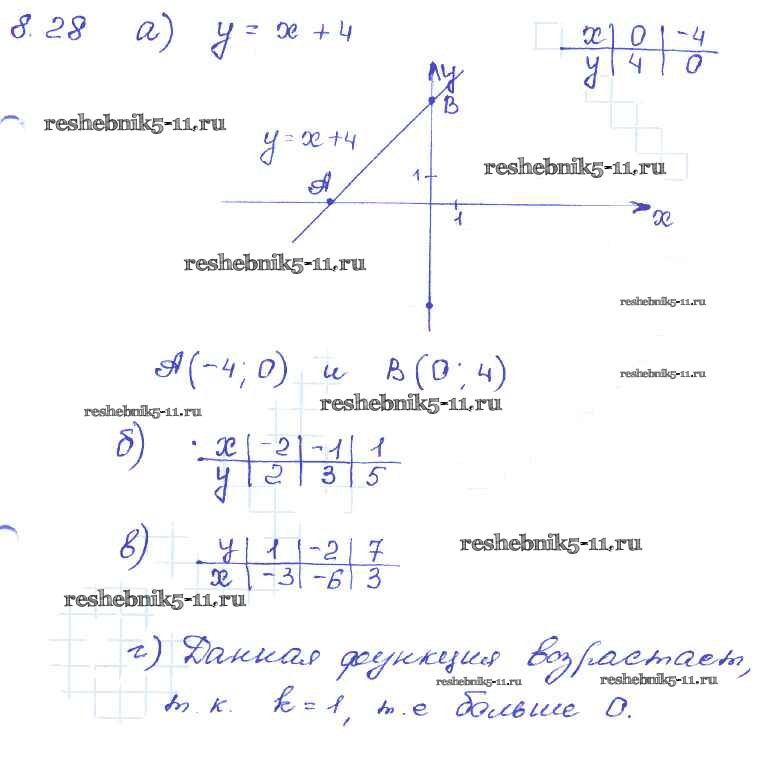 8.28 а) y = x + 4
x | 0 | -4
y | 4 | 0
y
B
reshebnik5-11.ru
y = x + 4
reshebnik5-11.ru
1
A
1
x
reshebnik5-11.ru
reshebnik5-11.ru
A(-4; 0) и B(0; 4)
reshebnik5-11.ru
reshebnik5-11.ru
reshebnik5-11.ru
б) x | -2 | -1 | 1
y | 2 | 3 | 5
в) y | 1 | -2 | 7
x | -3 | -6 | 3
reshebnik5-11.ru
reshebnik5-11.ru
г) Данная функция возрастает,
reshebnik5-11.ru
reshebnik5-11.ru
т.к. k = 1, т.е больше 0.